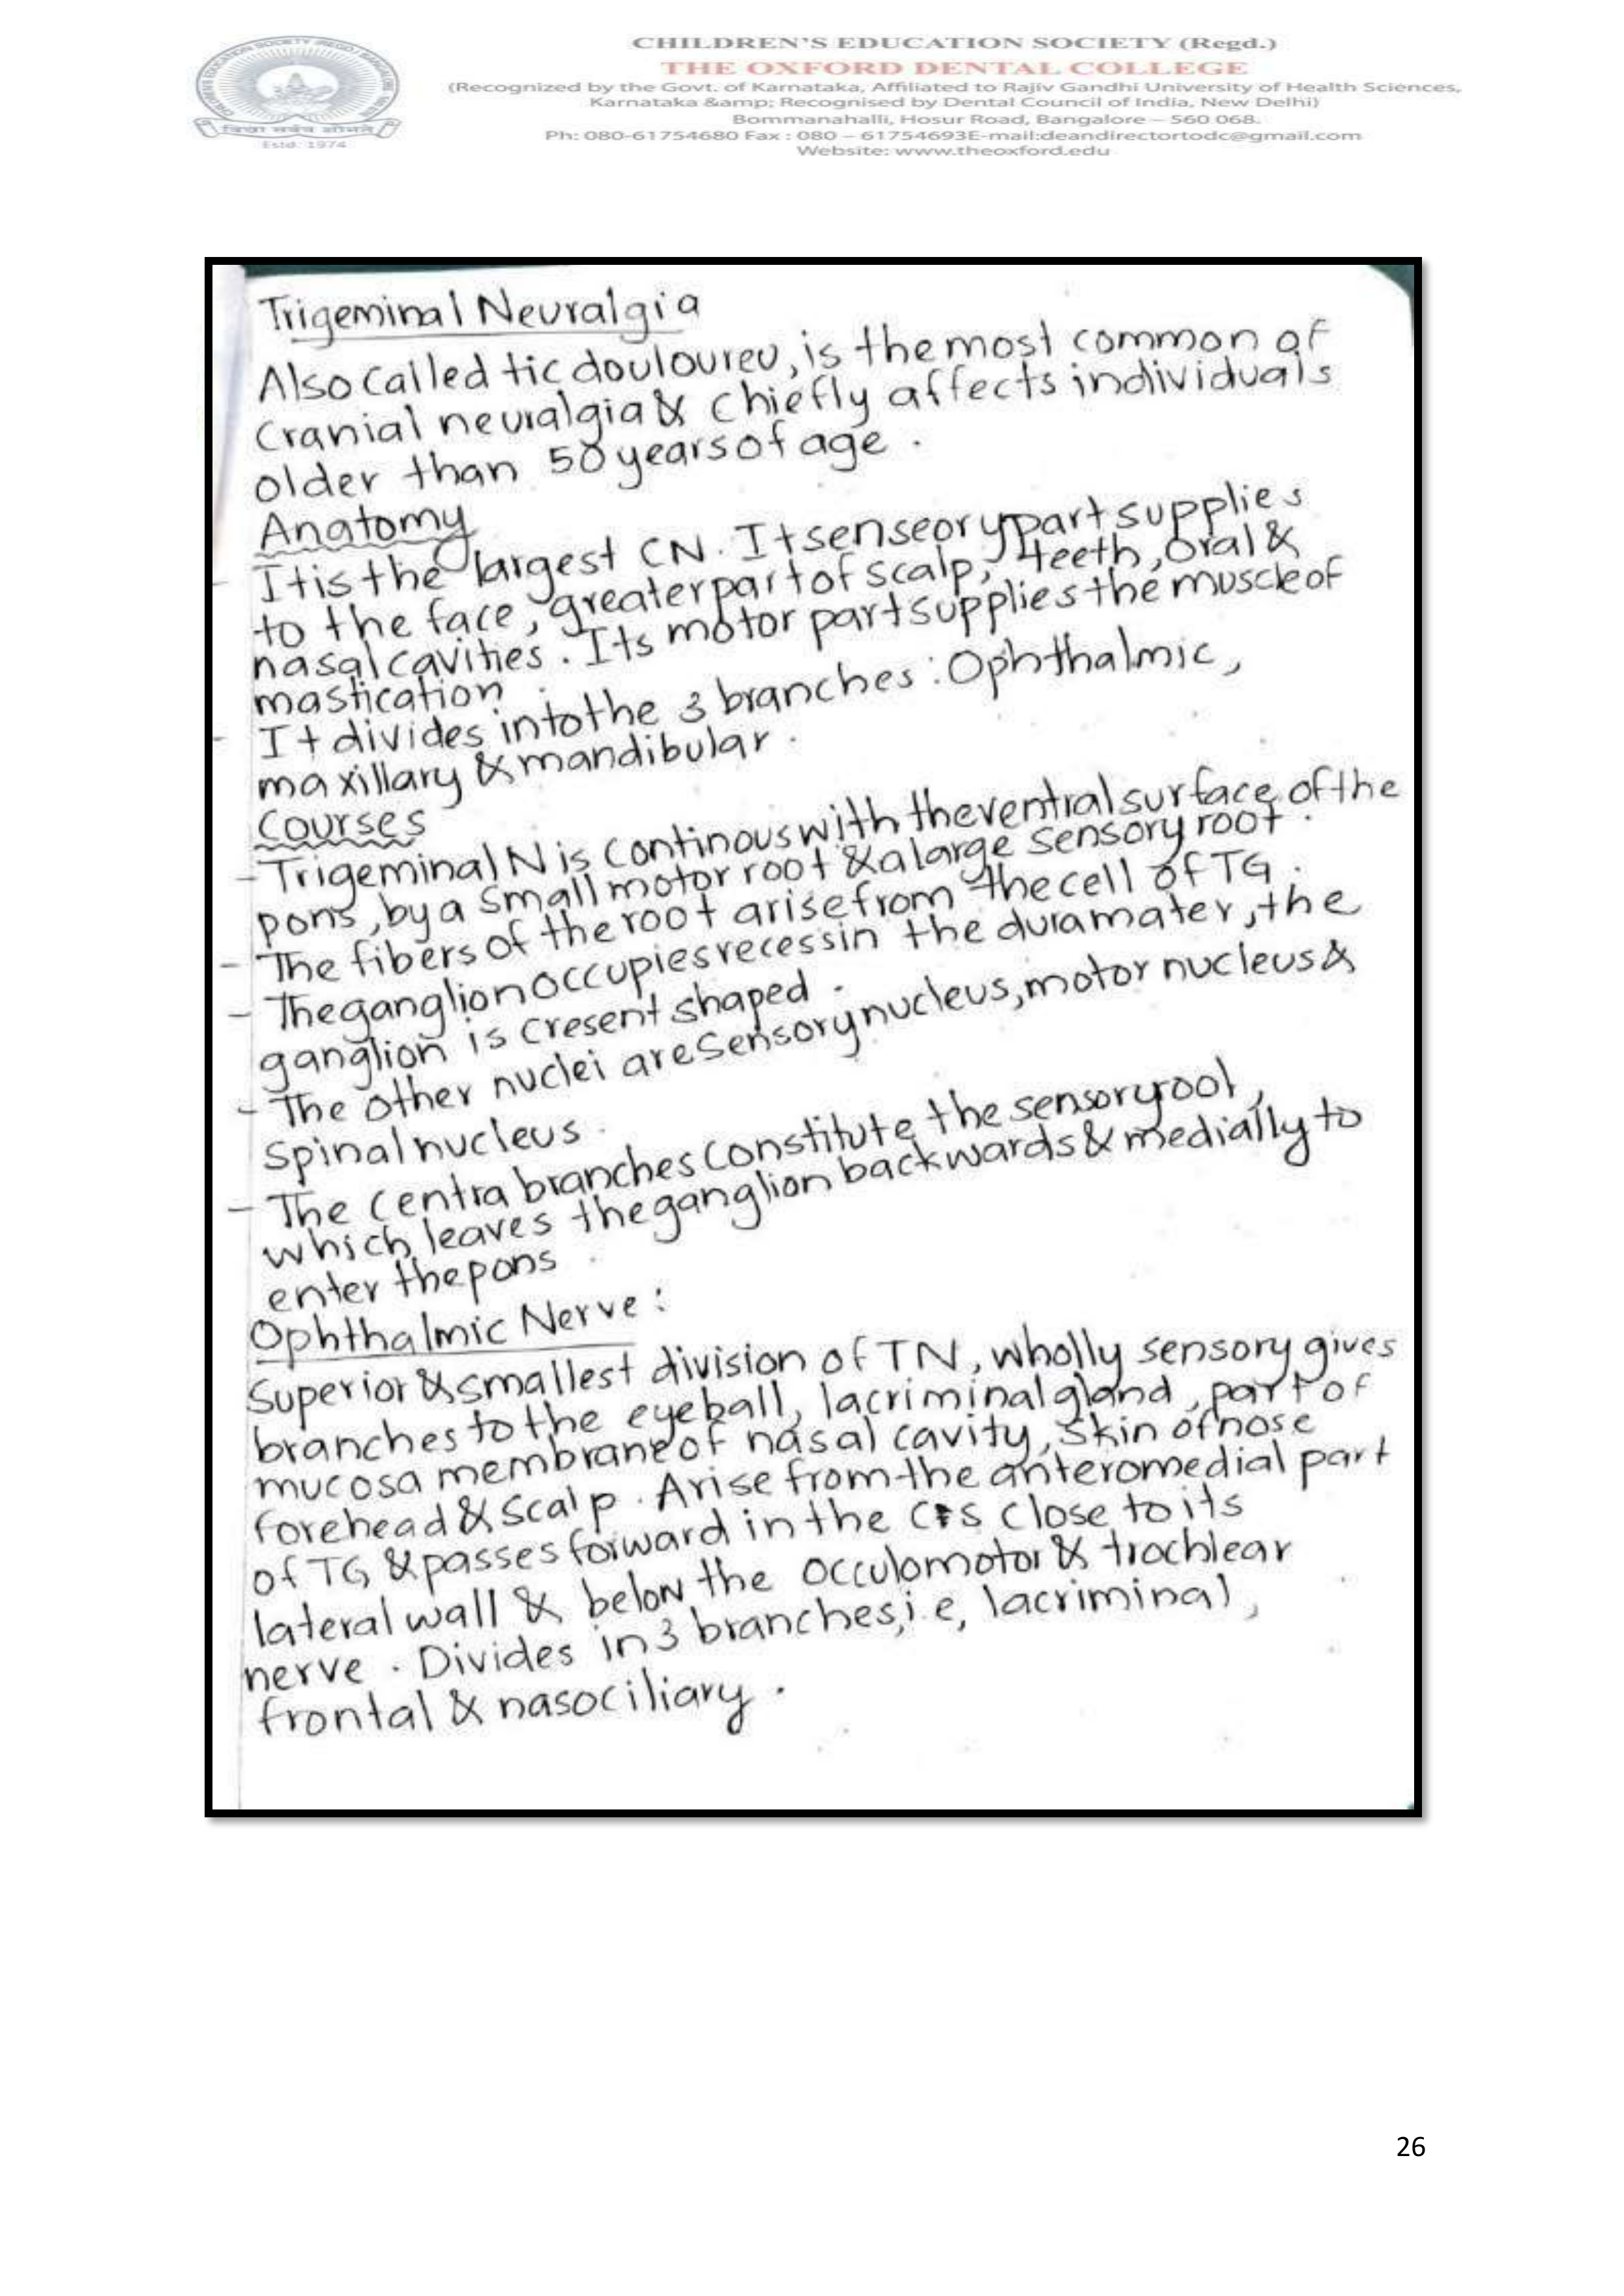 CHILDREN'S EDUCATION SOCIETY (Regd.)
THE OXFORD DENTAL COLLEGE
(Recognized by the Govt. of Karnataka, Affiliated to Rajiv Gandhi University of Health Sciences,
Karnataka &amp; Recognised by Dental Council of India, New Delhi)
Bommanahalli, Hosur Road, Bangalore – 560 068.
Ph: 080-61754680 Fax : 080 – 61754693E-mail:deandirectortodc@gmail.com
Website: www.theoxford.edu
Estd. 1974
Trigeminal Neuralgia
Also called tic douloureu, is the most common of
Cranial neuralgia & chiefly affects individuals
older than 50 years of age.
Anatomy
- It is the largest CN. It senseory part supplies
to the face, greater part of scalp, teeth, oral &
nasal cavities. Its motor part supplies the muscle of
mastication.
- It divides into the 3 branches: Ophthalmic,
maxillary & mandibular.
Courses
- Trigeminal N is continous with the ventral surface of the
pons, by a small motor root & a large sensory root.
- The fibers of the root arise from the cell of TG.
- The ganglion occupies recess in the dura mater, the
ganglion is cresent shaped.
- The other nuclei are sensory nucleus, motor nucleus &
spinal nucleus.
- The centra branches constitute the sensory root,
which leaves the ganglion backwards & medially to
enter the pons.
Ophthalmic Nerve:
Superior & smallest division of TN, wholly sensory gives
branches to the eyeball, lacriminal gland, part of
mucosa membrane of nasal cavity, skin of nose
forehead & scalp. Arise from the anteromedial part
of TG & passes forward in the CS close to its
lateral wall & below the occulomotor & trochlear
nerve. Divides in 3 branches, i.e, lacriminal,
frontal & nasociliary.
26